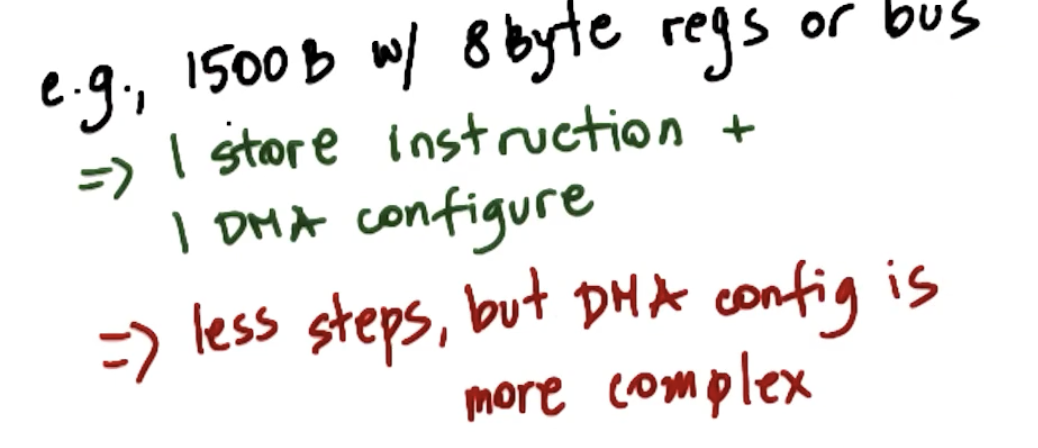 e.g., 1500B w/ 8 byte regs or bus
=> 1 store instruction +
1 DMA configure
=> less steps, but DMA config is
more complex